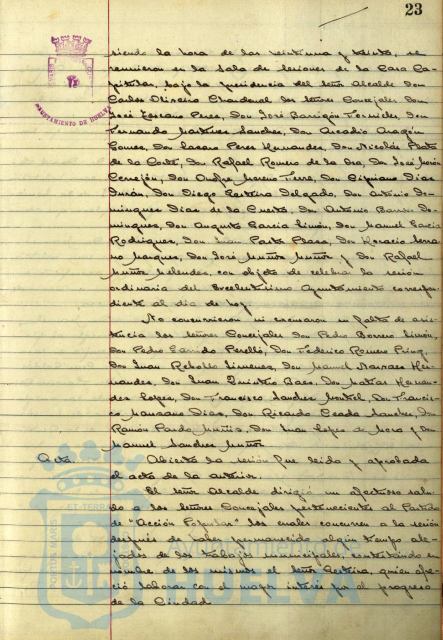 23
siendo la hora de las veintiuna y treinta, se
reunieron en la Sala de Sesiones de la Casa Ca-
pitular, bajo la presidencia del señor Alcalde Don
Carlos Oliveira Chardenal los señores Concejales Don
José Lozano Perez, Don José Barrigón Fornieles, Don
Fernando Martinez Sanchez, Don Arcadio Aragón
Gomez, Don Lazaro Perez Hernandez, Don Nicolás
de la Corte, Don Rafael Romero de la Osa, Don José
Cerrejón, Don Onofre Moreno Don Cipriano Dias
Durán, Don Diego Delgado, Don Antonio Do-
minguez Dias de la Cuesta, Don Antonio Do-
minguez, Don Augusto Garcia Limón, Don Manuel Garcia
Rodriguez, Don Juan Plaza, Don Horacio Serra-
no Marquez, Don José Muñoz Muñoz y Don Rafael
Muñoz Melendez, con objeto de celebrar la sesión
ordinaria del Excelentisimo Ayuntamiento correspon-
diente al día de hoy.
No concurrieron ni excusaron su falta de asis-
tencia los señores Concejales Don Pedro Borrero Limón,
Don Pedro Garrido Perelló, Don Federico Romero
Don Juan Rebollo Jimenez, Don Manuel Narvaez Her-
nandez, Don Juan Quintero Baez, Don Matias Hernan-
dez Lopez, Don Francisco Sanchez Don Francis-
co Manzano Dias, Don Ricardo Sanchez, Don
Ramón Pardo Don Juan Lopez de y Don
Manuel Sanchez Muñoz
Acta. Abierta la sesión fué leida y aprobada
el acta de la anterior.
El señor Alcalde dirigió un afectuoso salu-
do a los señores Concejales pertenecientes al Partido
de "Acción Popular" los cuales concurren a la sesión
después de haber permanecido algún tiempo ale-
jados de los trabajos municipales, contestando en
nombre de los mismos el señor quien ofre-
ció laborar con el mayor interés por el progreso
de la Ciudad
AYUNTAMIENTO DE HUELVA
PORTUS MARIS ET TERRAE
HUELVA